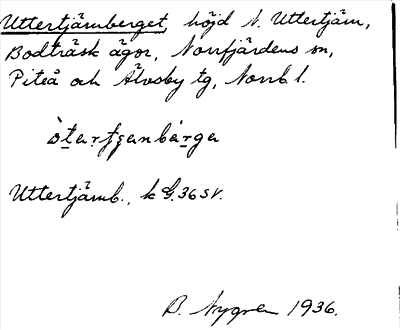 Uttertjärnberget, höjd N. Uttertjärn,
Bodträsk ägor, Norrfjärdens sn,
Piteå och Älvsby tg, Norrb. l.
Uttertjärnb., k G. 36 SV.
B. Nygren 1936.